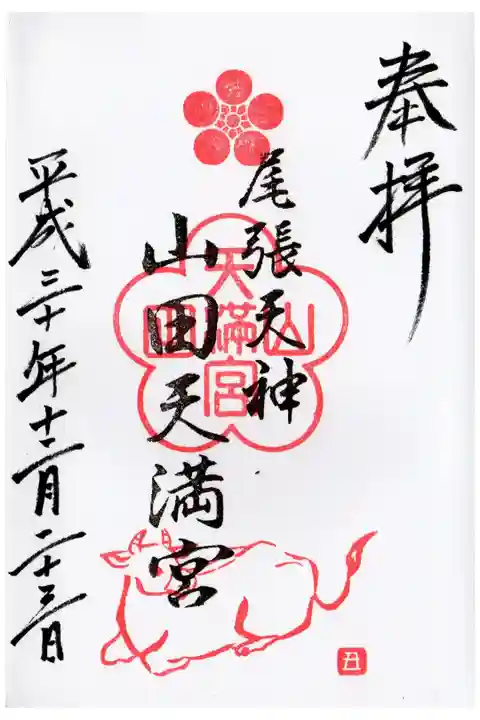 奉拝
尾張天神
山田天満宮
平成三十年十二月二十三日
山田
天満宮
丑